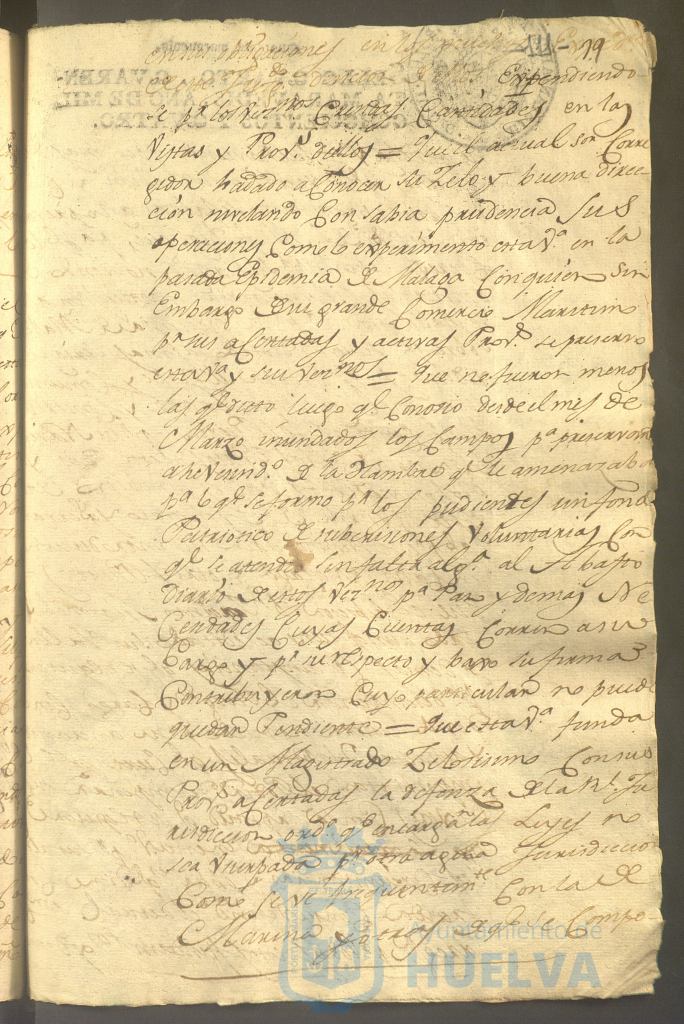 en sus posesiones en los
III - 19
expendiendo
se pr. los vezinos Cuantiosas Cantidades en las
Vistas y Prov.s dellos = Que el actual sor. Corre
gidor ha dado a Conocer su Zelo y buena direc-
ción nivelando Con sabia prudencia Sus
operaciones Como lo experimento esta V.a en la
pasada Epidemia de Malaga Con quien sin
Embargo de su grande Comercio Maritimo
pr. sus acertadas y activas Prov.s se preservo
esta V.a y sus vezinos = Que no fueron menos
las qe. dicto luego qe. Conocio desde el mes de
Marzo inundados los Campos pa. preservar
a he Vezind.o de la Hambre qe. le amenazaba
pa. lo qe. se formo pr. los pudientes un fondo
Patriotico de subcrisiones Voluntarias Con
qe. se atendio sin falta alg.a al Abasto
diario de estos Vez.nos pa. Pan y demas Ne
Cesidades Cuyas Cuentas Corren a su
Cargo y pr. su respecto y bavo su firma
Contribuyeron Cuyo particular no puede
quedar Pendiente = Que esta V.a funda
en un Magistrado Zelosisimo Con sus
Prov.s acertadas la defenza de la Rl. Ju
risdiccion ord.a qe. encargan las Leyes no
sea Vsurpada pr. otra agena Jurisdiccion
Como se ve frequentem.te Con la de
Marina y otras de qe. se Compo-
Ayuntamiento de
HUELVA